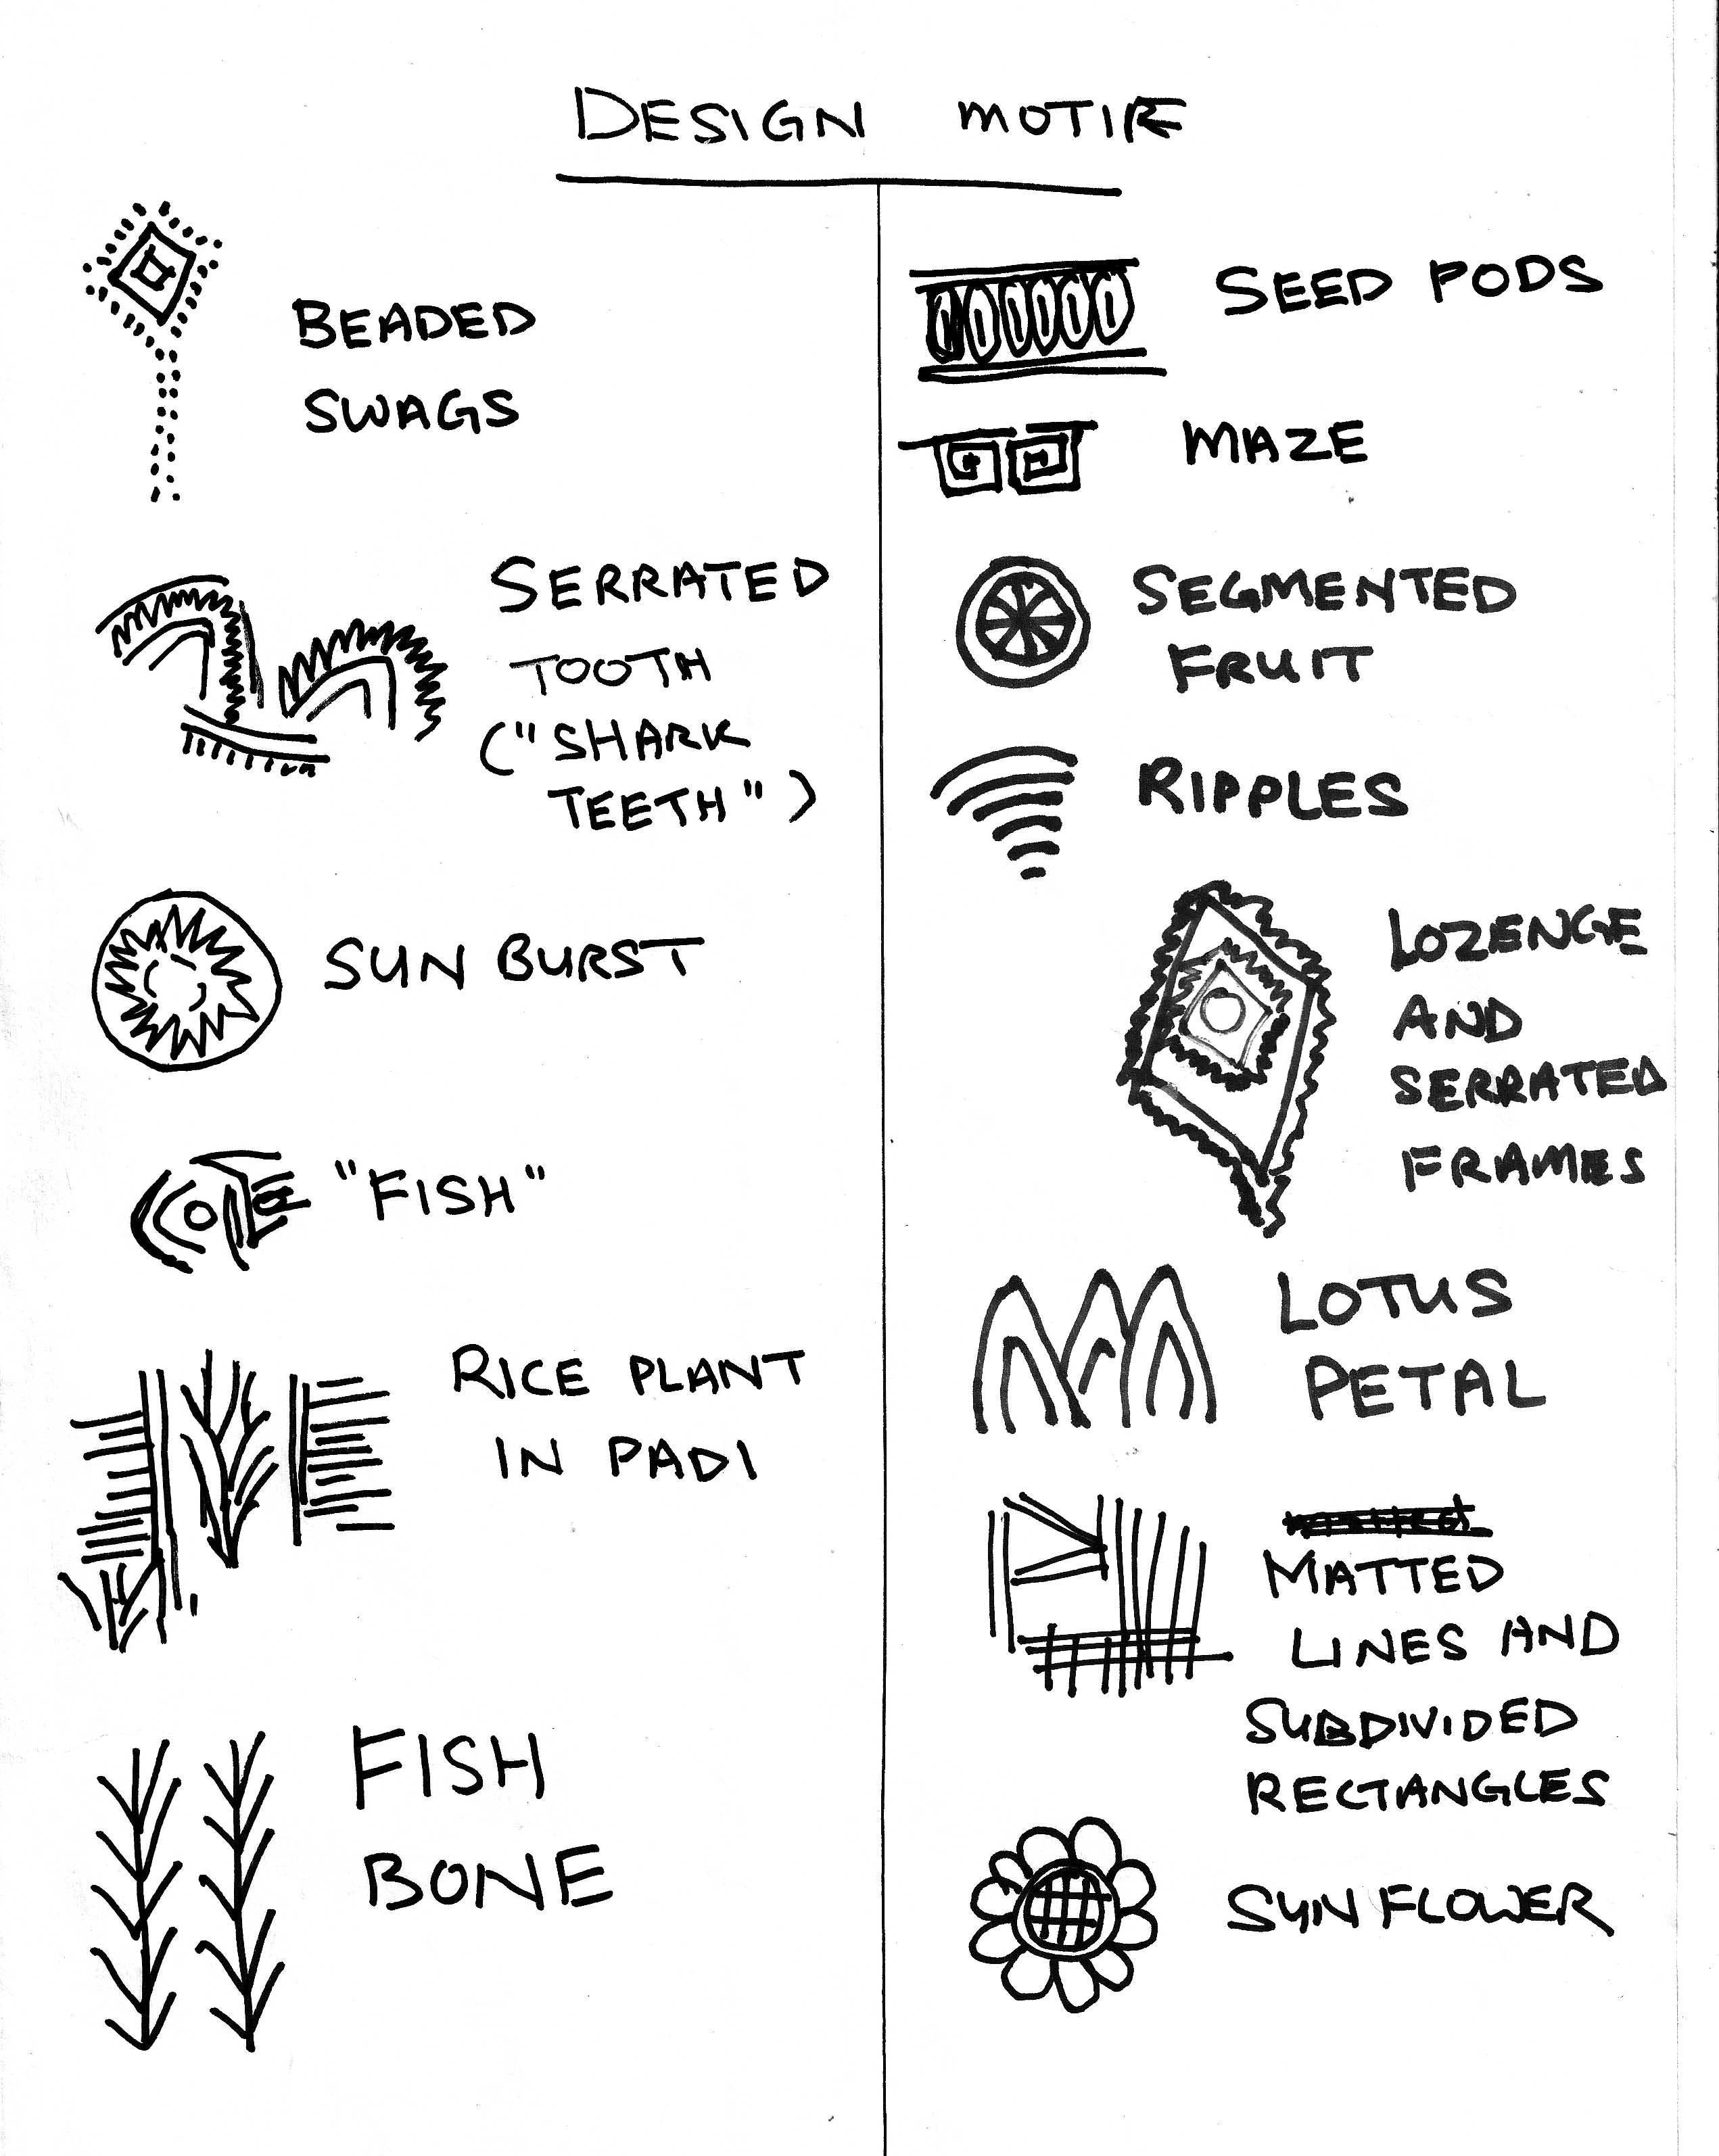 DESIGN MOTIF
BEADED
SWAGS
SERRATED
TOOTH
("SHARK
TEETH")
SUN BURST
"FISH"
RICE PLANT
IN PADI
FISH
BONE
SEED PODS
MAZE
SEGMENTED
FRUIT
RIPPLES
LOZENGE
AND
SERRATED
FRAMES
LOTUS
PETAL
MATTED
LINES AND
SUBDIVIDED
RECTANGLES
SUNFLOWER